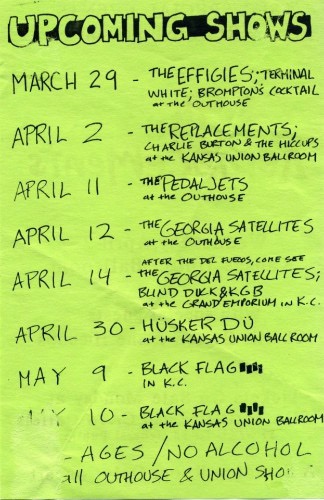 UPCOMING SHOWS
MARCH 29 - THE EFFIGIES; TERMINAL
WHITE; BROMPTON'S COCKTAIL
at the OUTHOUSE
APRIL 2 - THE REPLACEMENTS;
CHARLIE BURTON & THE HICCUPS
at the KANSAS UNION BALLROOM
APRIL 11 - THE PEDALJETS
at the OUTHOUSE
APRIL 12 - THE GEORGIA SATELLITES
at the OUTHOUSE
AFTER THE DEL FUEGOS, COME SEE
APRIL 14 - THE GEORGIA SATELLITES;
BLIND DUKK & KGB
at the GRAND EMPORIUM in K.C.
APRIL 30 - HÜSKER DÜ
at the KANSAS UNION BALLROOM
MAY 9 - BLACK FLAG
IN K.C.
10 - BLACK FLAG
at the KANSAS UNION BALLROOM
- AGES / NO ALCOHOL
all OUTHOUSE & UNION